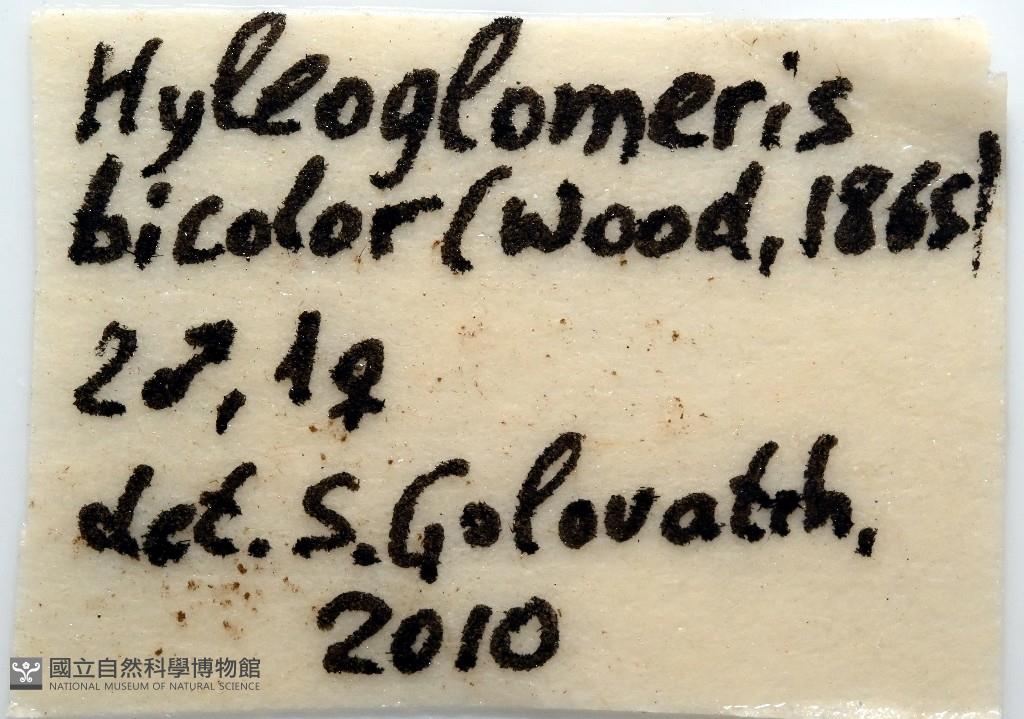 Hyleoglomeris
bicolor (Wood, 1865)
2♂, 1♀
det. S. Golovatch,
2010
國立自然科學博物館
NATIONAL MUSEUM OF NATURAL SCIENCE